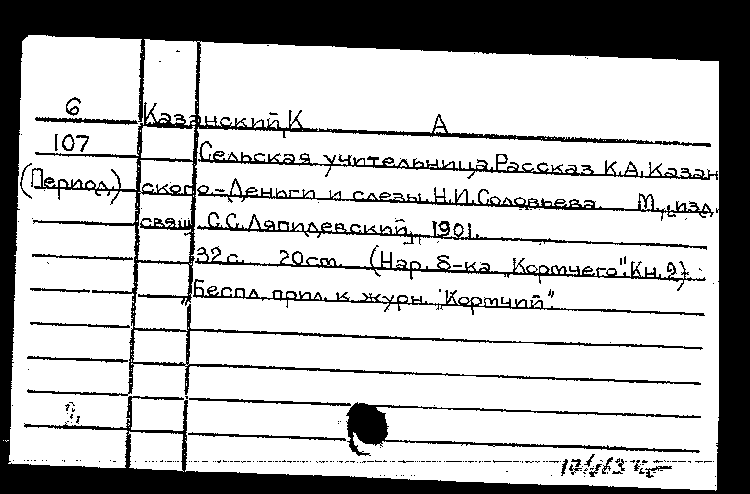 6 Казанский, К А
107 Сельская учительница. Рассказ К.А. Казан
(Период) ского.-Деньги и слезы. Н.И. Соловьева. М., изд.
свящ. С.С. Ляпидевский, 1901.
32 с. 20 см. (Нар. б-ка "Кормчего". Кн. 2)
Беспл. прил. к журн. "Кормчий".